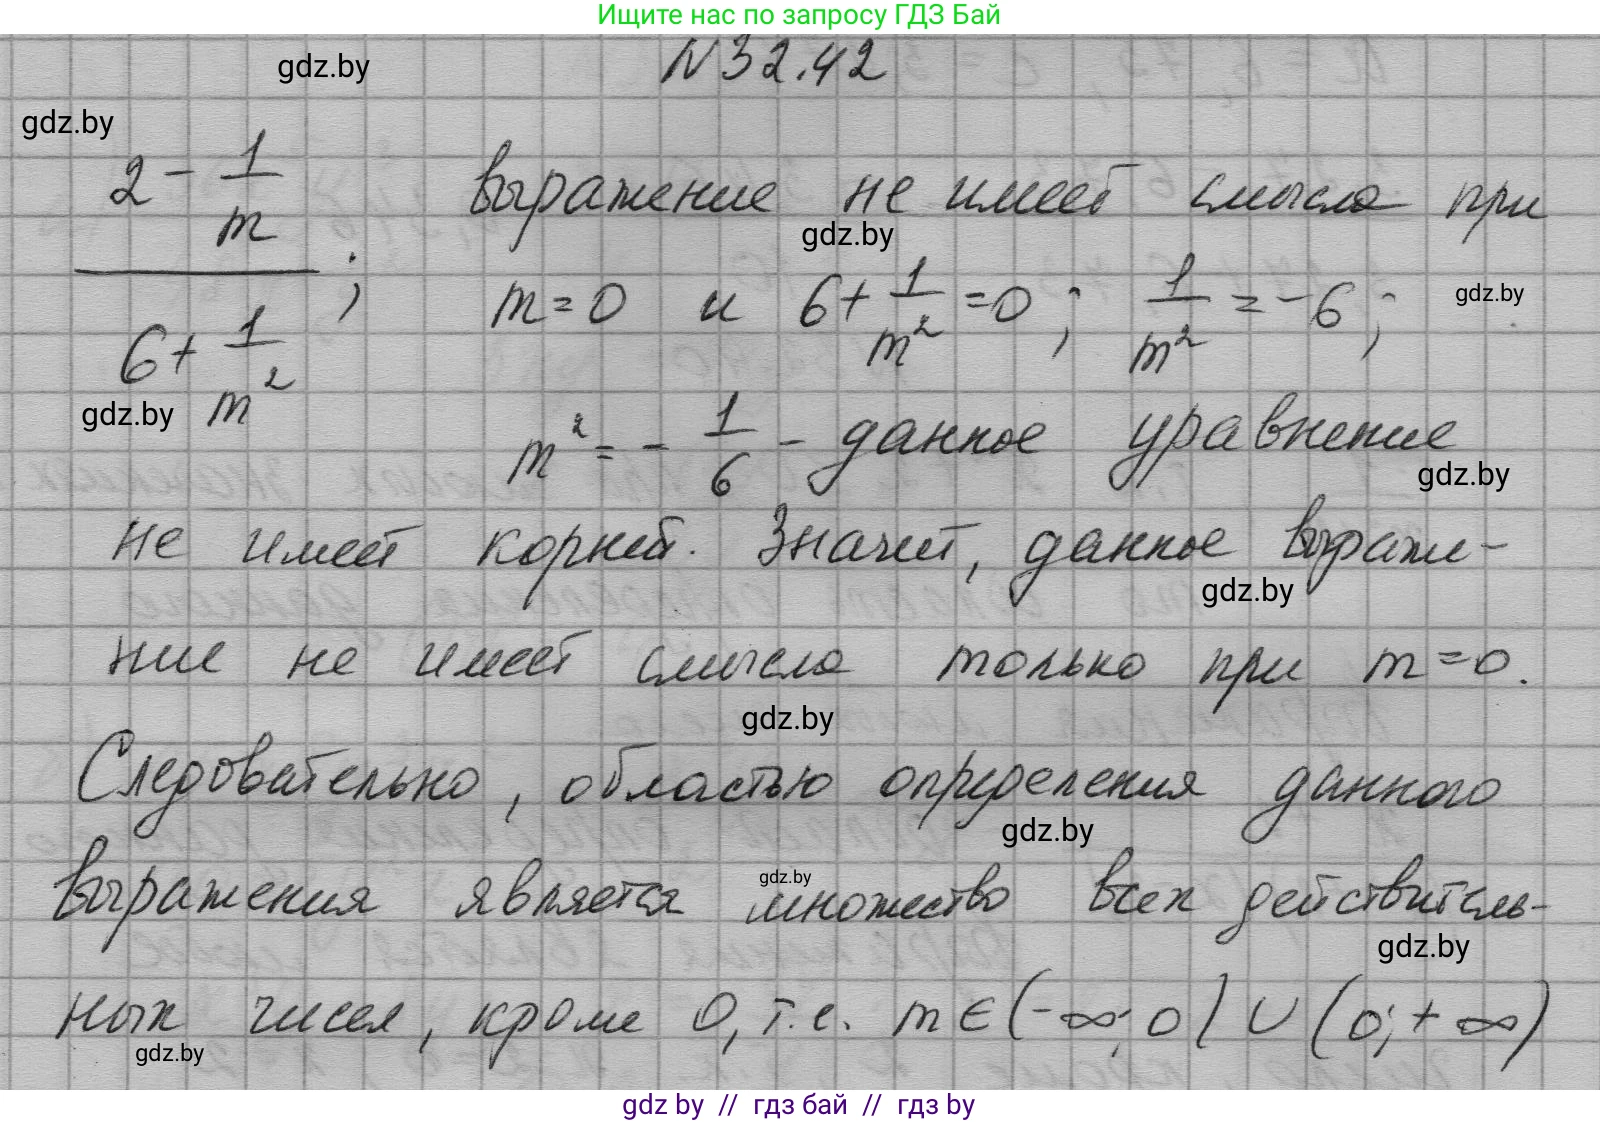 Ищите нас по запросу ГДЗ Бай
N 32.42
gdz.by
gdz.by
(2 - 1/m) / (6 + 1/m²) ; выражение не имеет смысла при
gdz.by
m = 0 и 6 + 1/m² = 0 ; 1/m² = -6 ;
gdz.by
gdz.by
m² = - 1/6 - данное уравнение
gdz.by
не имеет корней. Значит, данное выраже-
gdz.by
ние не имеет смысла только при m = 0.
gdz.by
Следовательно, областью определения данного
gdz.by
выражения является множество всех действитель-
gdz.by
gdz.by
ных чисел, кроме 0, т.е. m ∈ (-∞; 0) ∪ (0; +∞)
gdz.by
gdz by // гдз бай // гдз by